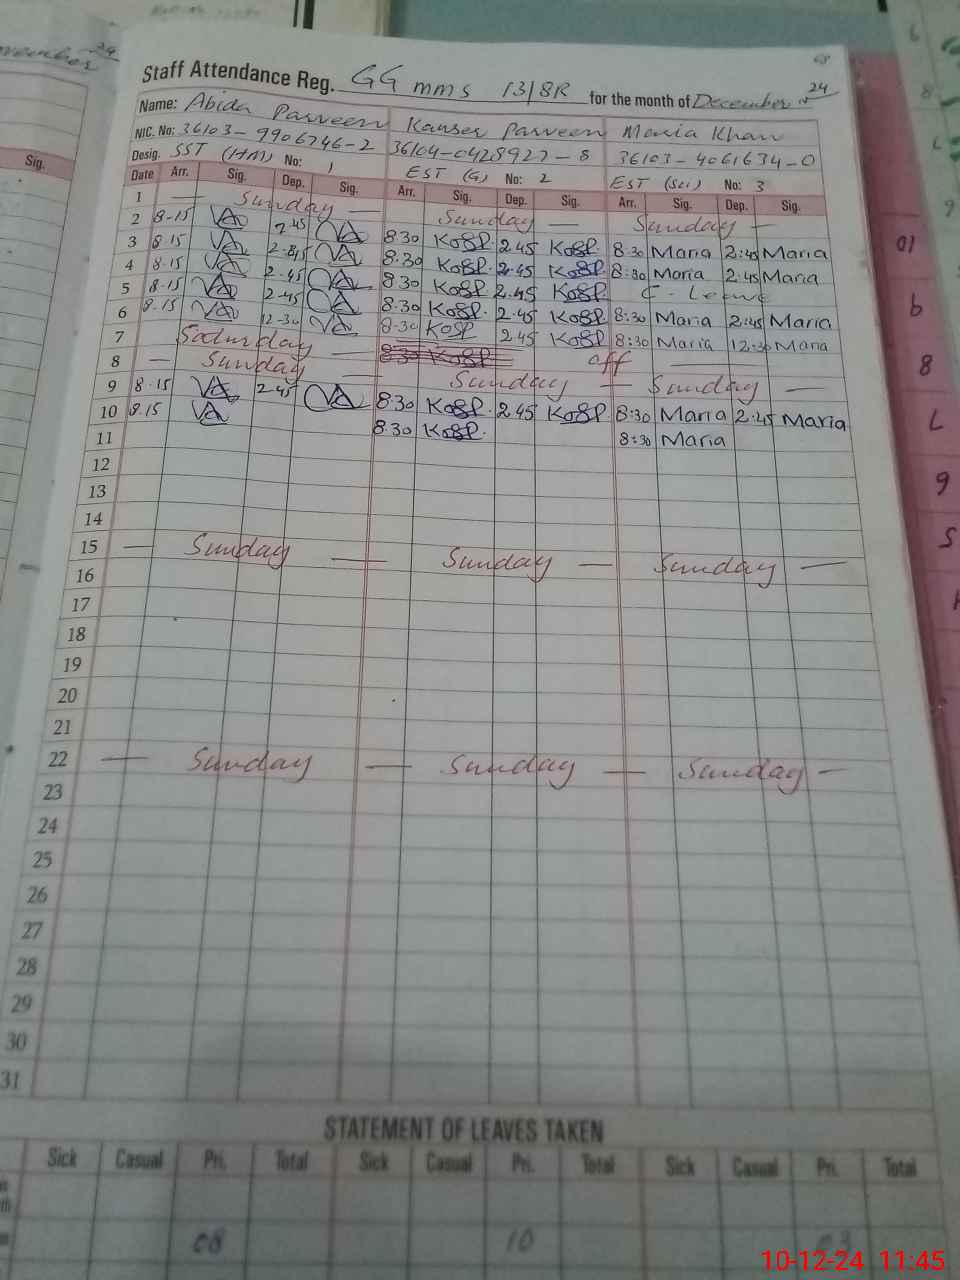 Staff Attendance Reg. GG mms 13/8R for the month of December 24
Name: Abida Parveen Kauser Parveen Maria Khan
NIC. No: 36103-9906746-2 36104-0428927-8 36103-4061634-0
Desig. SST (HM) No: 1 EST (G) No: 2 EST (Sci) No: 3
Date Arr. Sig. Dep. Sig. Arr. Sig. Dep. Sig. Arr. Sig. Dep. Sig.
1 — Sunday — Sunday — Sunday —
2 8-15 2.45 8:30 2.45 8:30 Maria 2:45 Maria
3 8.15 2.45 8.30 2.45 8:30 Maria 2:45 Maria
4 8.15 2.45 8.30 2.45 C-Leave
5 8.15 2.45 8.30 2.45 8:30 Maria 2:45 Maria
6 8.15 12-30 8-30 2.45 8:30 Maria 12:30 Maria
7 Saturday — off
8 — Sunday — Sunday — Sunday —
9 8.15 2.45 8.30 2.45 8:30 Maria 2:45 Maria
10 8.15 8.30 8:30 Maria
11
12
13
14
15 — Sunday — Sunday — Sunday —
16
17
18
19
20
21
22 — Sunday — Sunday — Sunday —
23
24
25
26
27
28
29
30
31
STATEMENT OF LEAVES TAKEN
Sick Casual Pri. Total Sick Casual Pri. Total Sick Casual Pri. Total
08 10 03
10-12-24 11:45